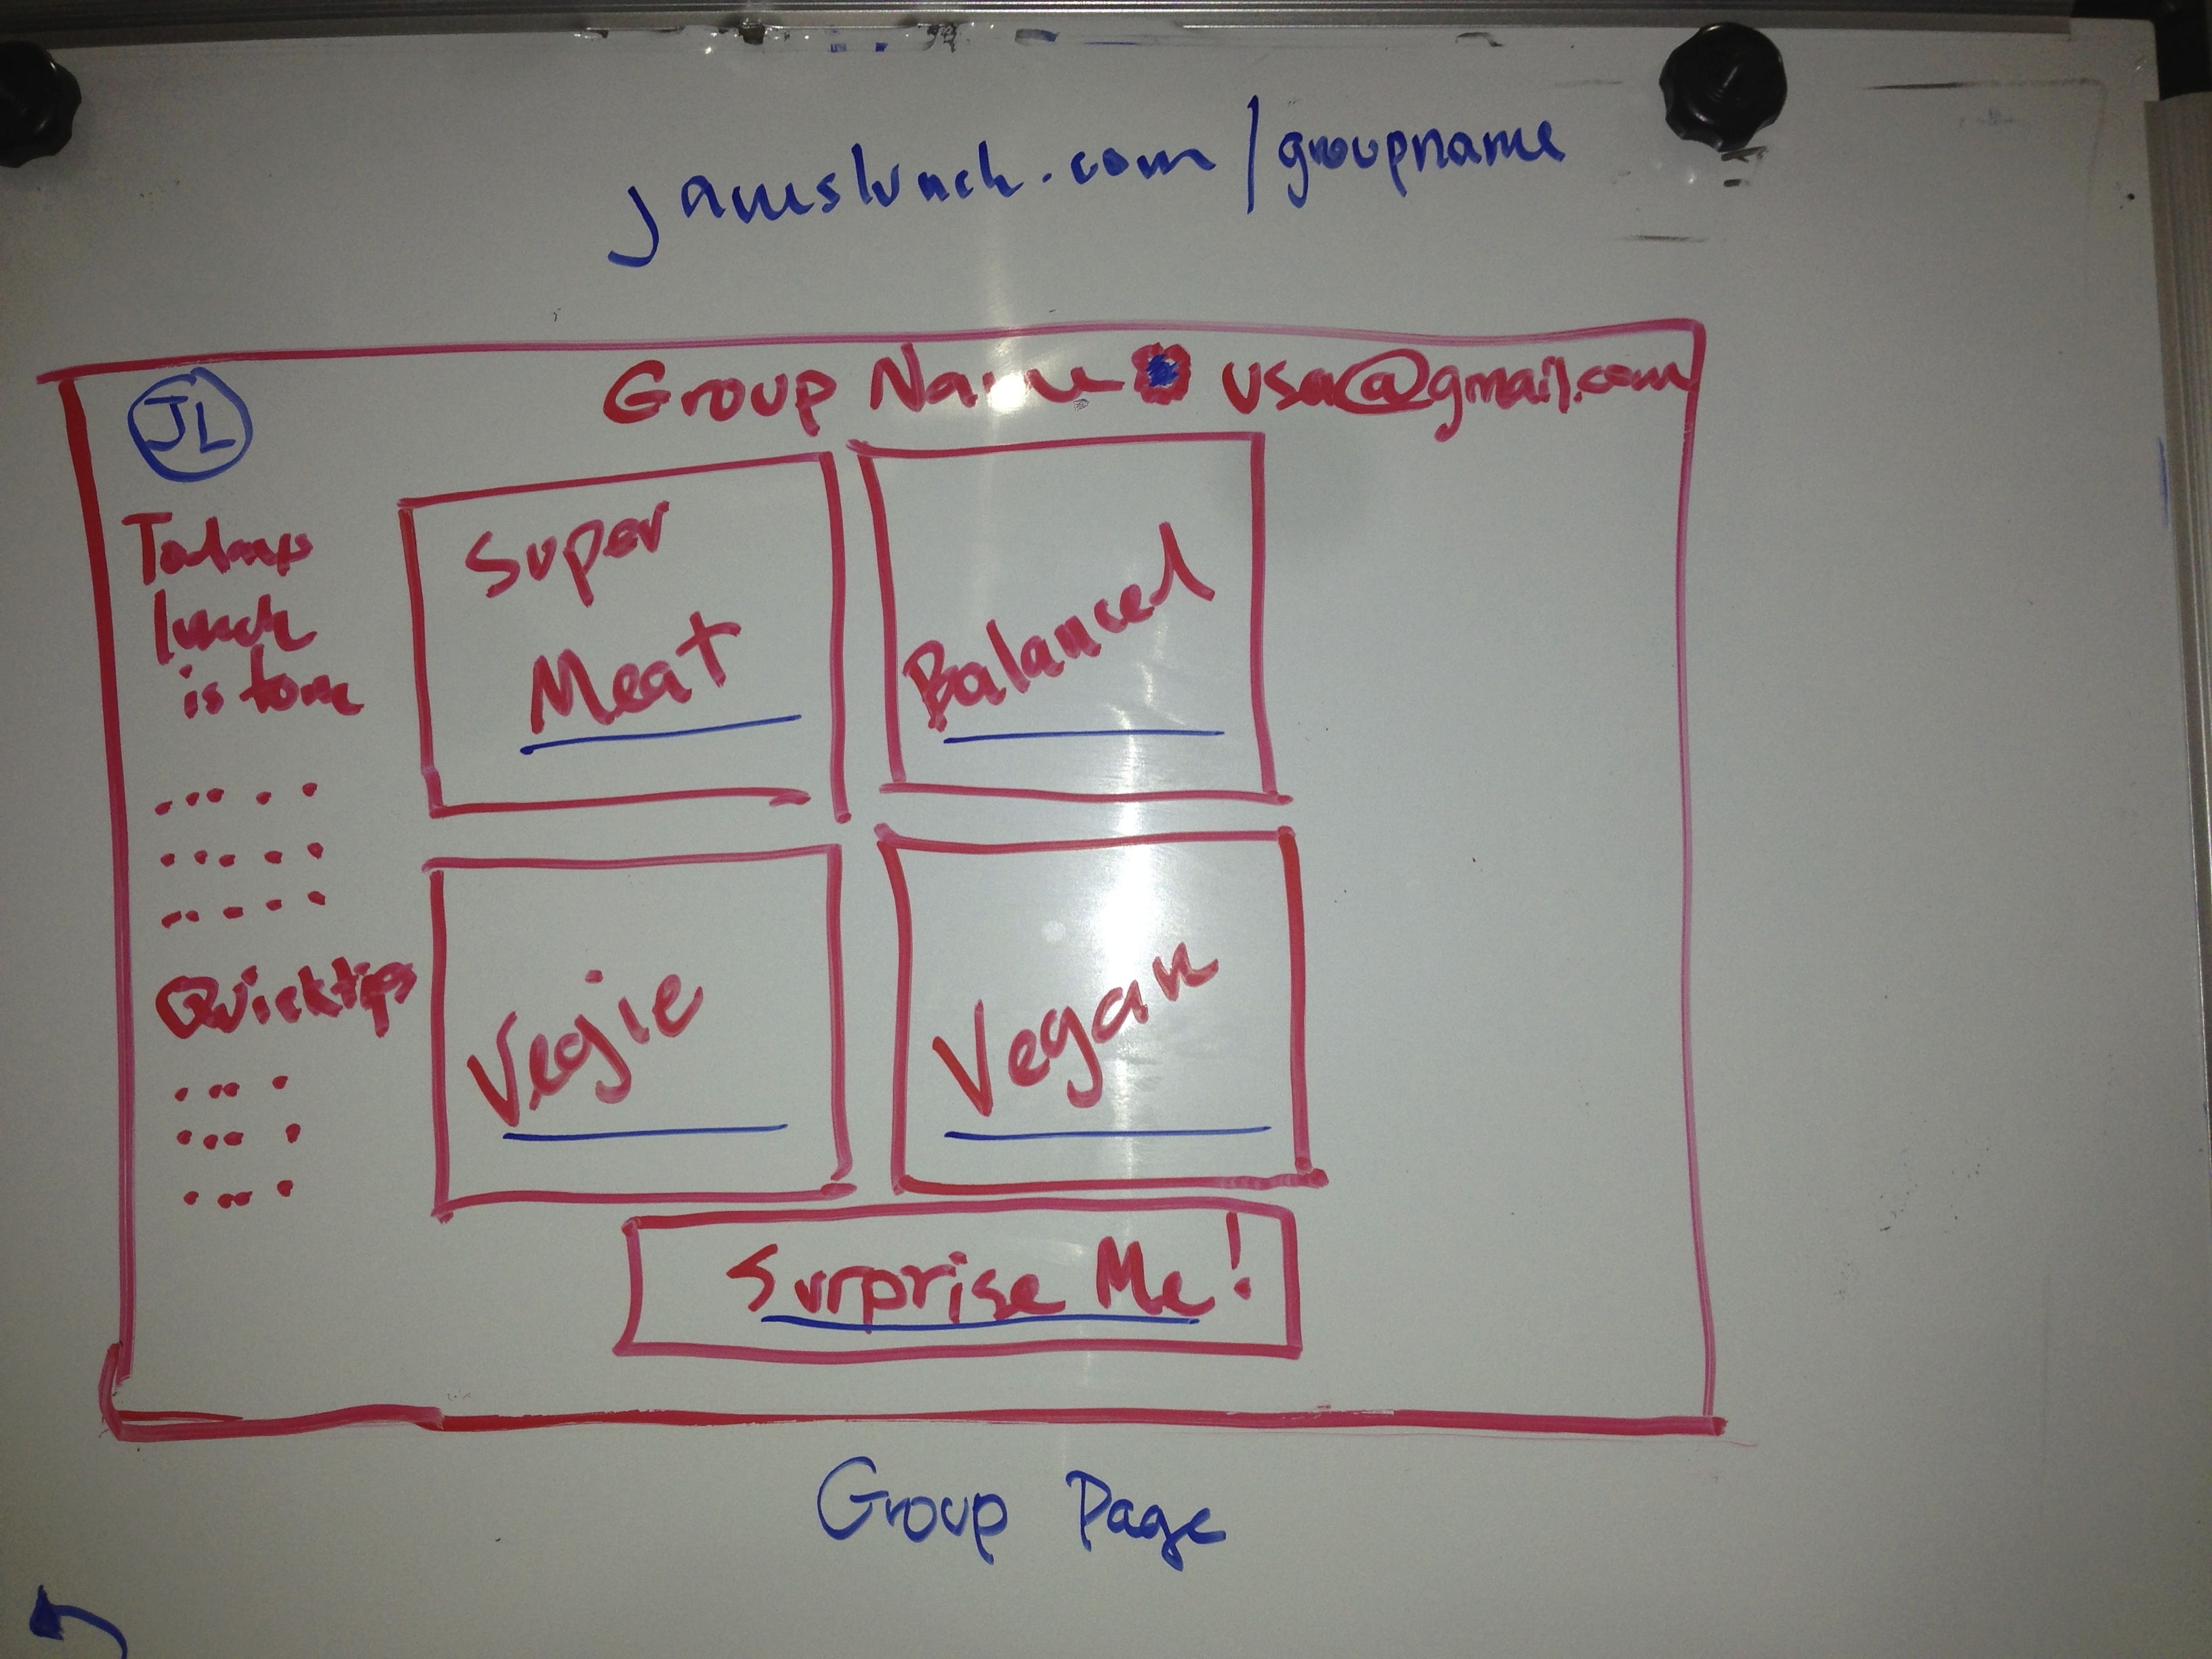 jameslunch.com/groupname
JL
Group Name user@gmail.com
Todays
lunch
is
Super
Meat
Balanced
Quicktips
Vegie
Vegan
Surprise Me!
Group Page